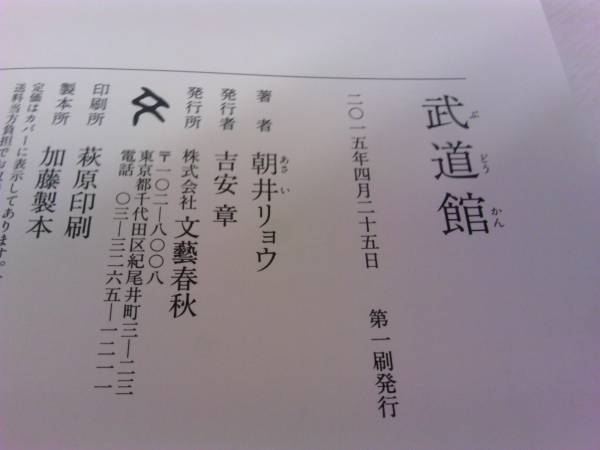 武道館
ぶどうかん
二〇一五年四月二十五日　第一刷発行
著者　朝井リョウ
あさい
発行者　吉安章
発行所　株式会社 文藝春秋
〒一〇二―八〇〇八
東京都千代田区紀尾井町三―二三
電話　〇三―三二六五―一二一一
印刷所　萩原印刷
製本所　加藤製本
定価はカバーに表示してあります。
送料当方負担でお